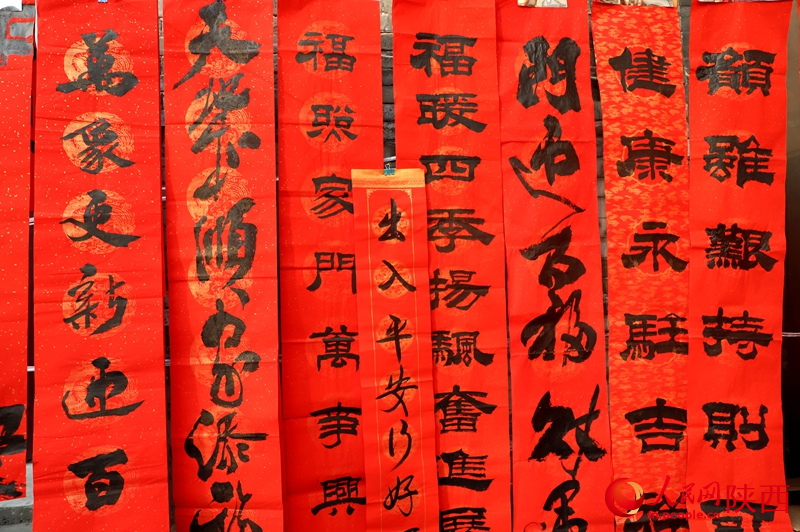 萬象更新迎百
順家添
福照家門萬事興
出入平安行好
福暖四季揚飄奮進展
門迎百福
健康永駐吉
雖艱持則
人民网陕西